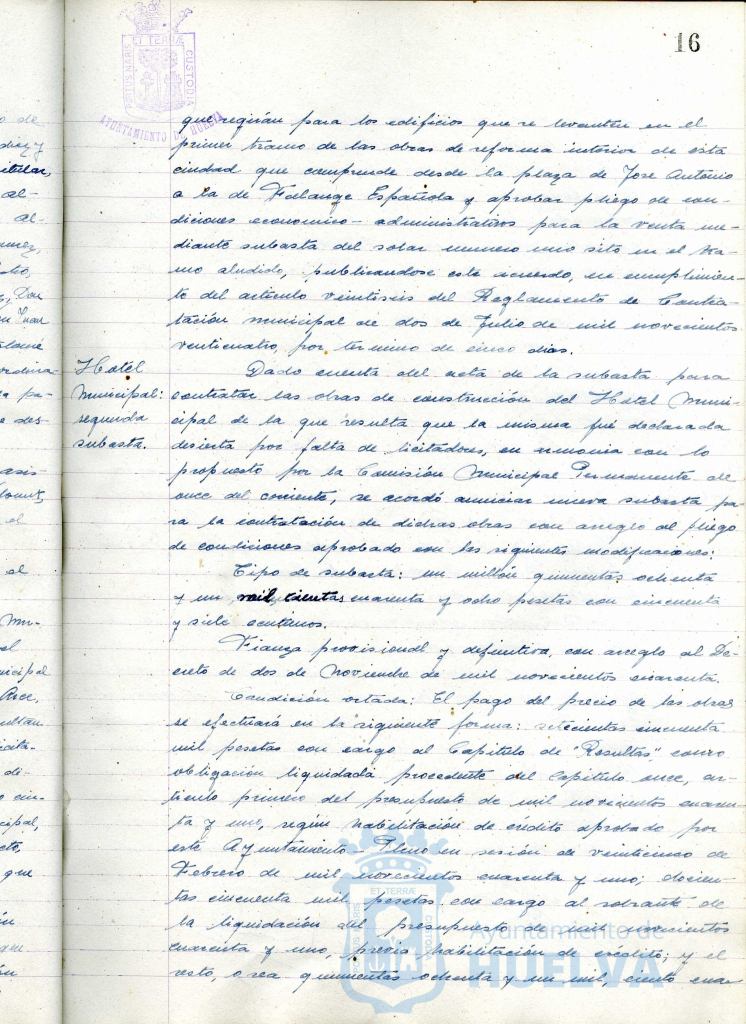 16
PORTUS MARIS ET TERRÆ CUSTODIA
AYUNTAMIENTO DE HUELVA
que regirán para los edificios que se levanten en el
primer tramo de las obras de reforma interior de esta
ciudad que comprende desde la plaza de José Antonio
a la de Falange Española y aprobar pliego de con-
diciones economico-administrativas para la venta me-
diante subasta del solar numero uno sito en el tra-
mo aludido, publicandose este acuerdo, en cumplimien-
to del articulo veintiseis del Reglamento de Contra-
tación municipal de dos de Julio de mil novecientos
venticuatro, por termino de cinco dias.
Hotel
Municipal:
segunda
subasta.
Dado cuenta del acta de la subasta para
contratar las obras de construcción del Hotel Muni-
cipal de la que resulta que la misma fué declarada
desierta por falta de licitadores, en armonia con lo
propuesto por la Comisión Municipal Permanente de
once del corriente, se acordó anunciar nueva subasta pa-
ra la contratación de dichas obras con arreglo al pliego
de condiciones aprobado con las siguientes modificaciones:
Tipo de subasta: un millón quinientas ochenta
y un mil cientas cuarenta y ocho pesetas con cincuenta
y siete centimos.
Fianza provisional y definitiva, con arreglo al De-
creto de dos de Noviembre de mil novecientos cuarenta.
Condición octada: El pago del precio de las obras
se efectuará en la siguiente forma: setecientas cincuenta
mil pesetas con cargo al Capitulo de "Resultas" como
obligación liquidada procedente del Capitulo once, ar-
ticulo primero del presupuesto de mil novecientos cuaren-
ta y uno, según habilitación de crédito aprobado por
este Ayuntamiento-Pleno en sesión de veinticinco de
Febrero de mil novecientos cuarenta y uno; docien-
tas cincuenta mil pesetas con cargo al sobrante de
la liquidación del presupuesto de mil novecientos
cuarenta y uno, previa habilitación de crédito; y el
resto, o sea quinientas ochenta y un mil, ciento cuar
Ayuntamiento de
HUELVA